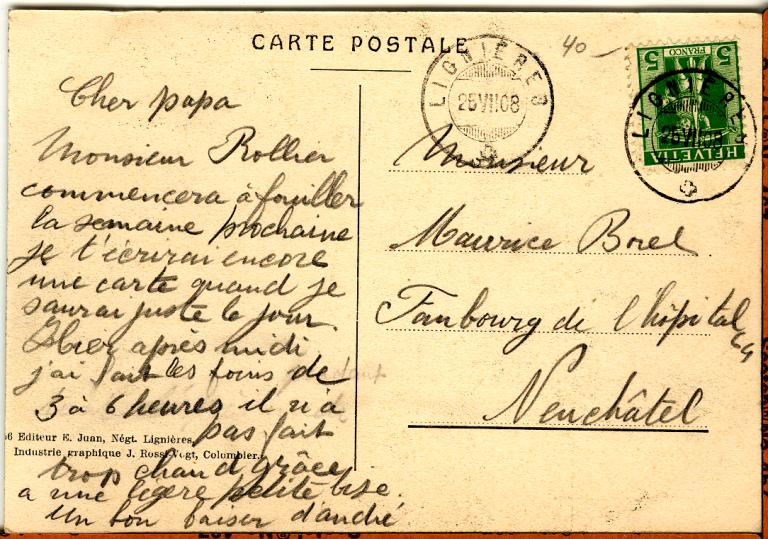 CARTE POSTALE
40
LIGNIÈRES
25 VII 08
5 FRANCO 5
HELVETIA
LIGNIÈRES
25 VII 08
Cher papa
Monsieur Rollier
commencera à fouiller
la semaine prochaine
je t'écrirai encore
une carte quand je
saurai juste le jour.
Hier après midi
j'ai fait les foins de
3 à 6 heures il n'a
pas fait
trop chaud grâce
a une légère petite bise.
Un bon baiser d'andré
Monsieur
Maurice Borel
Faubourg de l'hôpital
Neuchâtel
56 Editeur E. Juan, Négt. Lignières.
Industrie graphique J. Rossi-Vogt, Colombier.